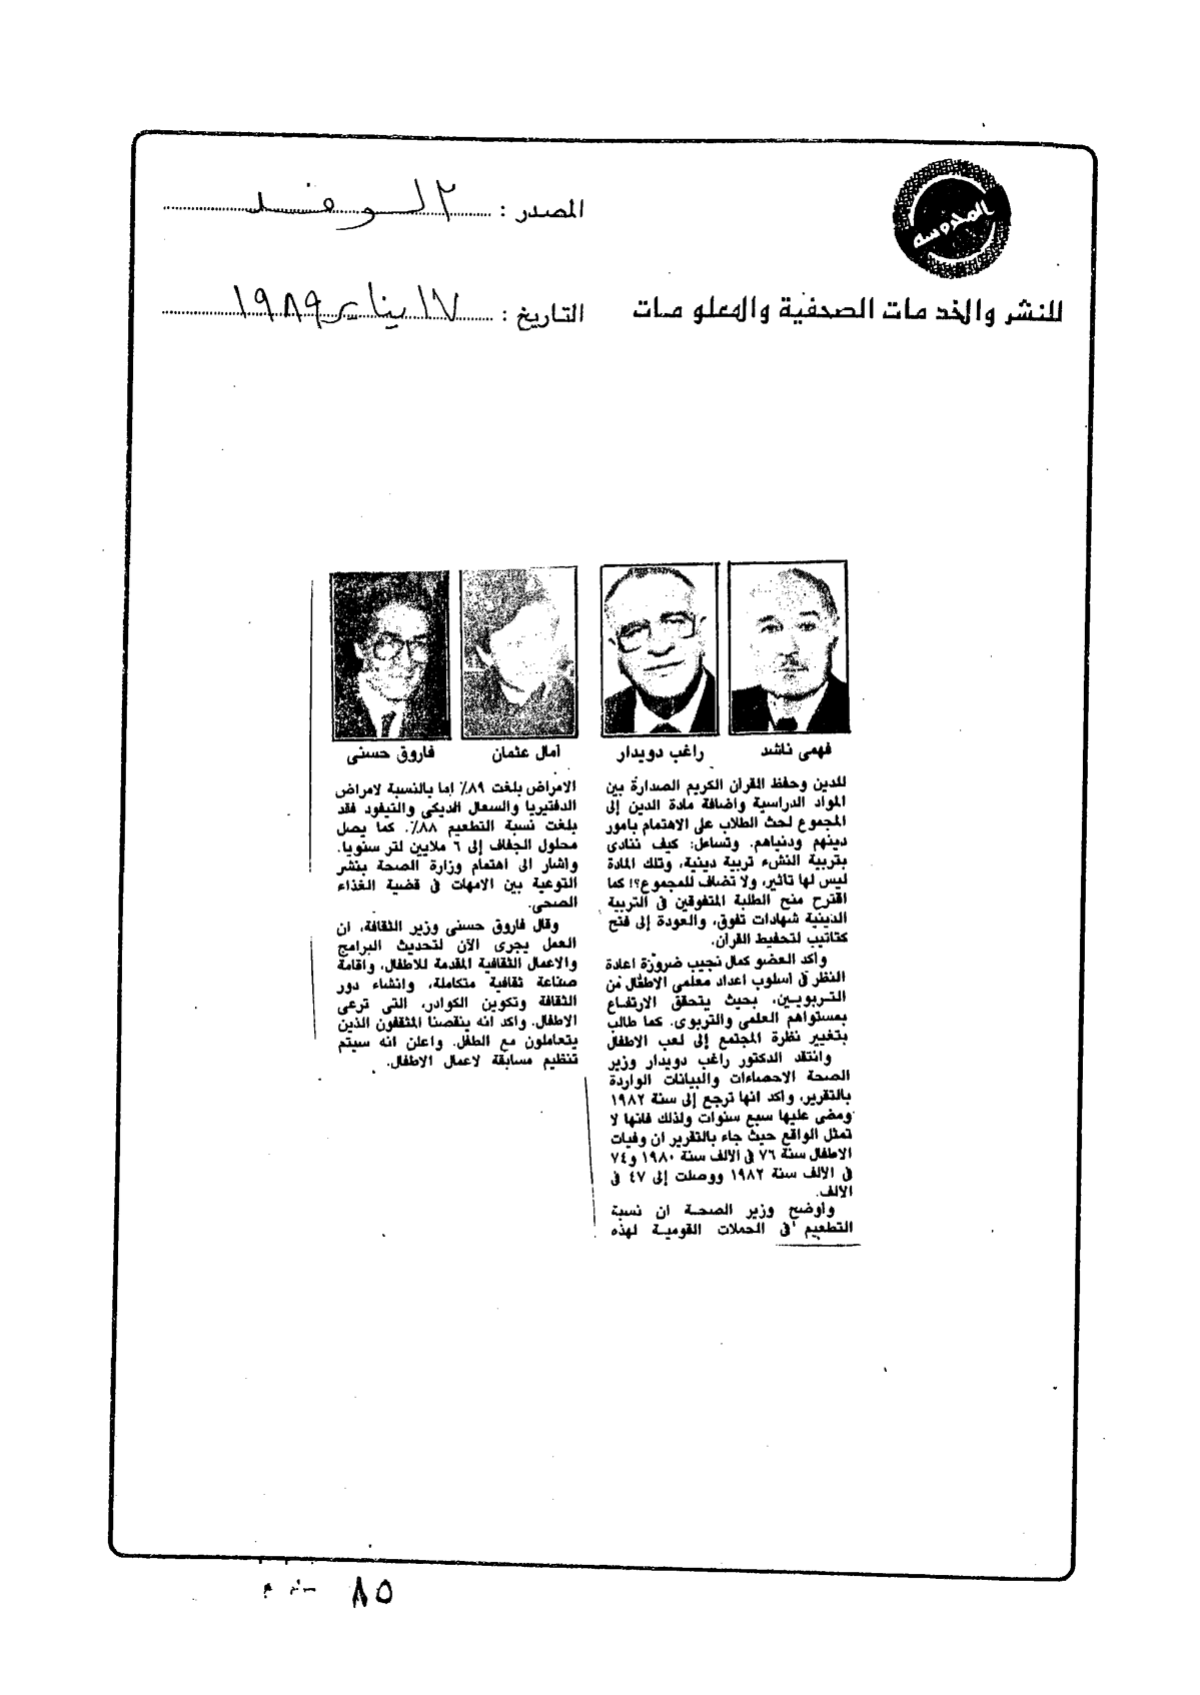 المحروسه
للنشر والخدمات الصحفية والمعلومات
المصدر : الوفد
التاريخ : ١٧ يناير ١٩٨٩
فهمى ناشد
راغب دويدار
آمال عثمان
فاروق حسنى
للدين وحفظ القرآن الكريم الصدارة بين
المواد الدراسية واضافة مادة الدين إلى
المجموع لحث الطلاب على الاهتمام بامور
دينهم ودنياهم. وتساءل: كيف ننادى
بتربية النشء تربية دينية، وتلك المادة
ليس لها تاثير، ولا تضاف للمجموع؟! كما
اقترح منح الطلبة المتفوقين فى التربية
الدينية شهادات تفوق، والعودة إلى فتح
كتاتيب لتحفيظ القرآن.
واكد العضو كمال نجيب ضرورة اعادة
النظر فى اسلوب اعداد معلمى الاطفال من
التربويين، بحيث يتحقق الارتفاع
بمستواهم العلمى والتربوى. كما طالب
بتغيير نظرة المجتمع إلى لعب الاطفال
وانتقد الدكتور راغب دويدار وزير
الصحة الاحصاءات والبيانات الواردة
بالتقرير، واكد انها ترجع إلى سنة ١٩٨٢
ومضى عليها سبع سنوات ولذلك فانها لا
تمثل الواقع حيث جاء بالتقرير ان وفيات
الاطفال سنة ٧٦ فى الالف سنة ١٩٨٠ و٧٤
فى الالف سنة ١٩٨٢ ووصلت إلى ٤٧ فى
الالف.
واوضح وزير الصحة ان نسبة
التطعيم فى الحملات القومية لهذه
الامراض بلغت ٨٩٪ اما بالنسبة لامراض
الدفتيريا والسعال الديكى والتيفود فقد
بلغت نسبة التطعيم ٨٨٪. كما يصل
محلول الجفاف إلى ٦ ملايين لتر سنويا.
واشار الى اهتمام وزارة الصحة بنشر
التوعية بين الامهات فى قضية الغذاء
الصحى.
وقال فاروق حسنى وزير الثقافة، ان
العمل يجرى الآن لتحديث البرامج
والاعمال الثقافية المقدمة للاطفال، واقامة
صناعة ثقافية متكاملة، وانشاء دور
الثقافة وتكوين الكوادر، التى ترعى
الاطفال. واكد انه ينقصنا المثقفون الذين
يتعاملون مع الطفل. واعلن انه سيتم
تنظيم مسابقة لاعمال الاطفال.
٨٥